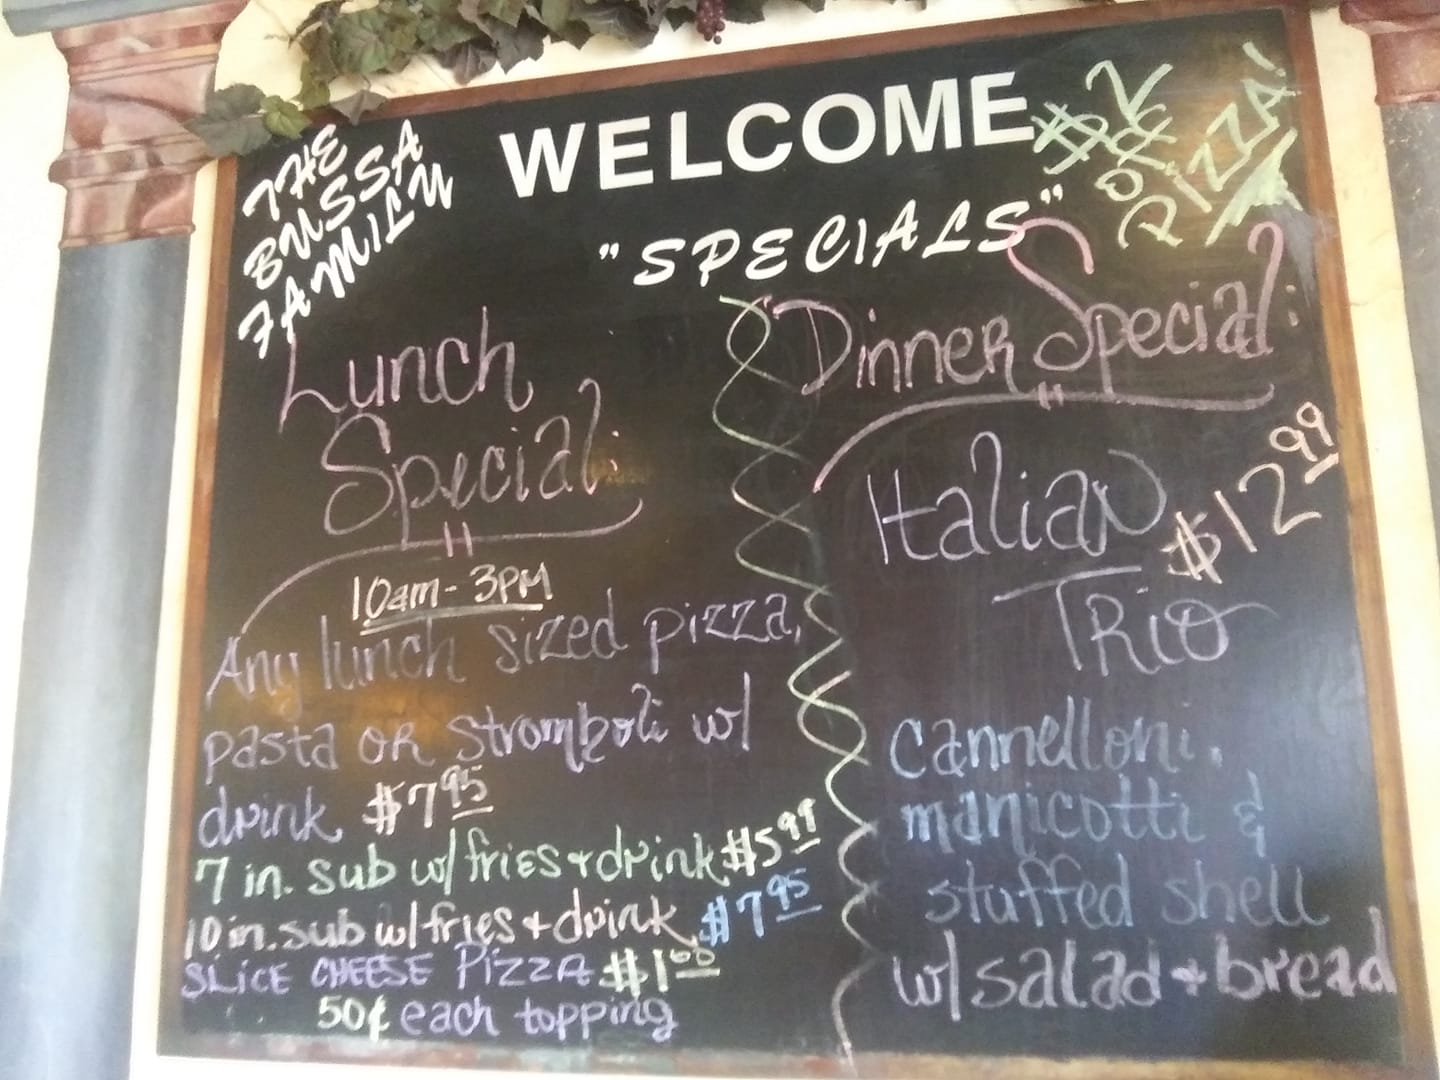 THE
BUSSA
FAMILY
WELCOME
"SPECIALS"
$2
OFF
PIZZA!
Lunch
Special:
10am - 3PM
Any lunch sized pizza,
pasta or stromboli w/
drink $7.95
7 in. sub w/ fries + drink $5.99
10 in. sub w/ fries + drink $7.95
SLICE CHEESE PIZZA $1.00
50¢ each topping
Dinner Special:
Italian $12.99
Trio
cannelloni,
manicotti &
stuffed shell
w/ salad + bread